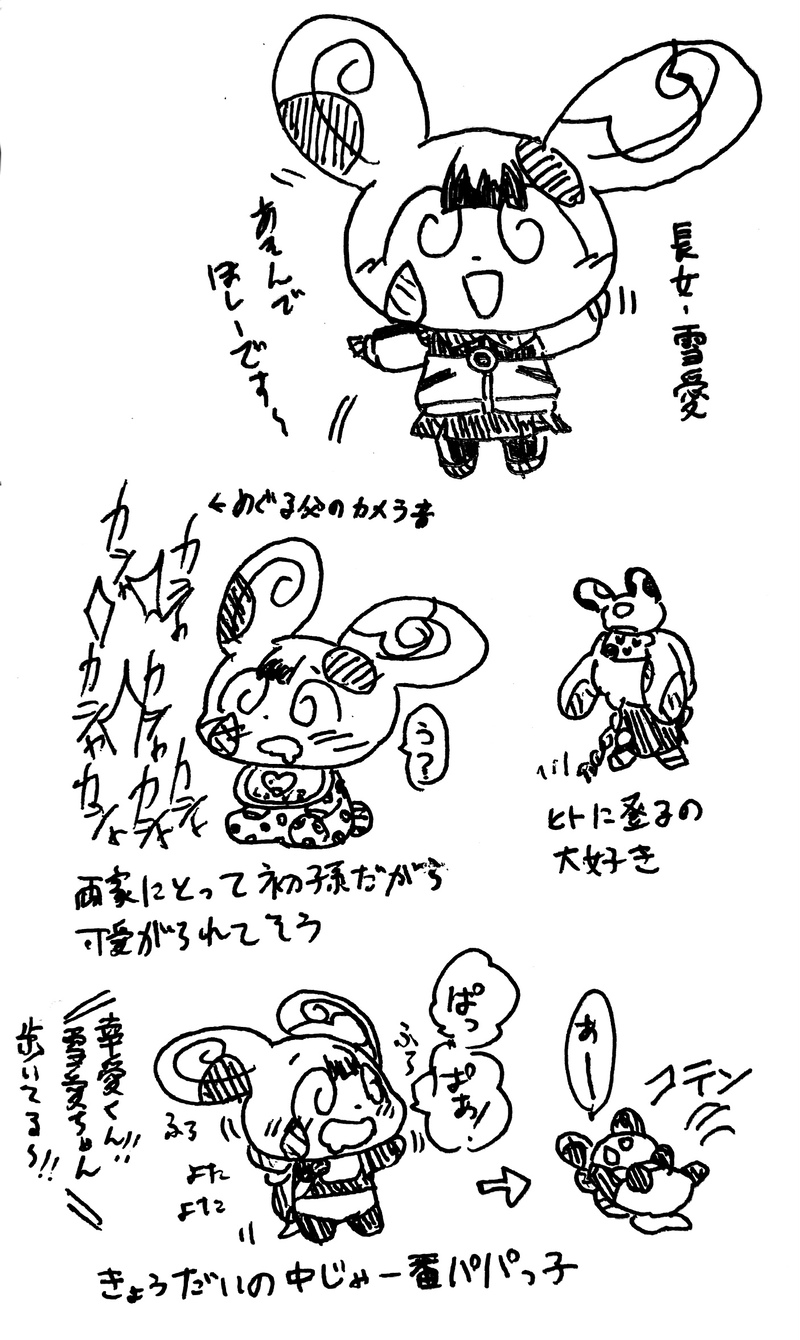 長女・雪愛
あそんで
ほしーです〜
←めぐる父のカメラ音
カシャ
カシャ
カシャ
カシャ
カシャ
カシャ
カシャ
う?
ヒトに登るの
大好き
両家にとって初孫だから
可愛がられてそう
ぱっ
ぱあ!
ふら
ふら
よた
よた
幸愛くん!!
雪愛ちゃん
歩いてる〜!!
→
あー
コテン
きょうだいの中じゃ一番パパっ子